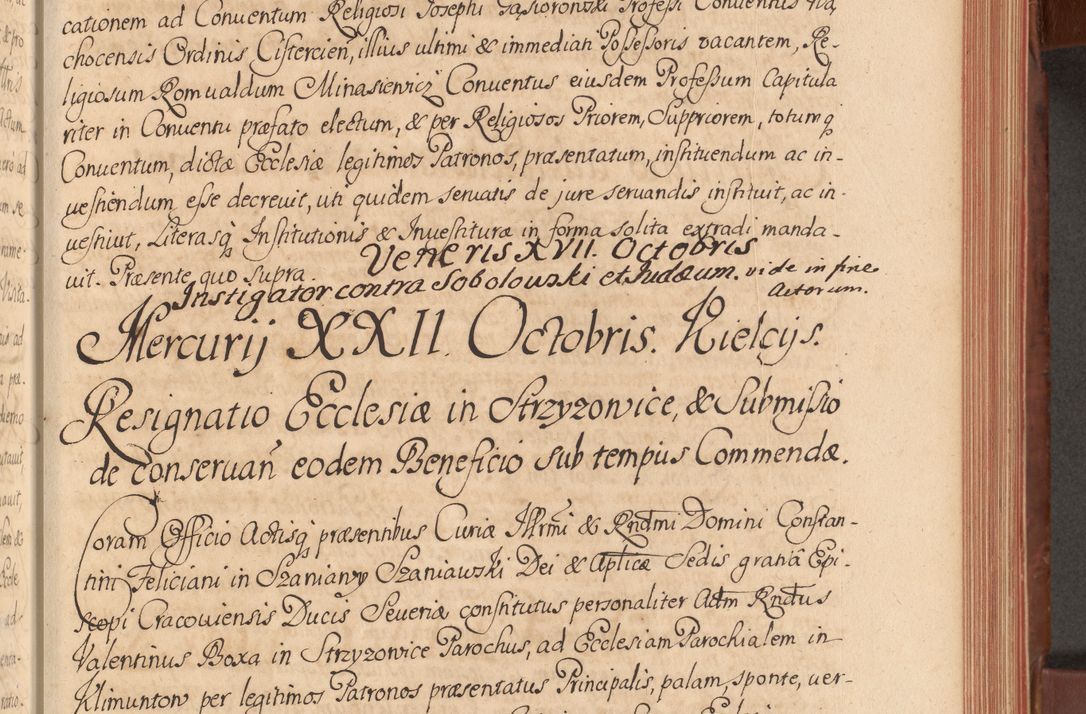 cationem ad Conventum Religiosi Josephi Gąsioronski Professi Conventus Wą
chocensis Ordinis Cistercien, illius ultimi & immediati Possessoris vacantem, Re-
ligiosum Romualdum Minasiewicz Conventus eiusdem Professum Capitula
riter in Conventu præfato electum, & per Religiosos Priorem, Suppriorem, totumq
Conventum, dictæ Ecclesiæ legitimos Patronos, præsentatum, instituendum ac in-
vestiendum esse decrevit, uti quidem servatis de jure servandis instituit, ac in-
vestivit, Literasq Institutionis & Investituræ in forma solita extradi manda-
vit. Præsente quo supra.
Veneris XVII. Octobris
Instigator contra Sobolowski et Judæum. vide in fine
Actorum.
Mercurij XXII. Octobris. Kielcijs.
Resignatio Ecclesiæ in Strzyzowice, & Submissio
de conservan̄ eodem Beneficio sub tempus Commendæ.
Coram Officio Actisq præsentibus Curiæ Illrmi & Rndmi Domini Constan-
tini Feliciani in Szaniawy Szaniawski Dei & Aplicæ Sedis gratiâ Epi-
scopi Cracoviensis Ducis Severiæ constitutus personaliter Adm Rndus
Valentinus Boxa in Strzyzowice Parochus, ad Ecclesiam Parochialem in
Klimuntow per legitimos Patronos præsentatus Principalis, palam, sponte, ver-